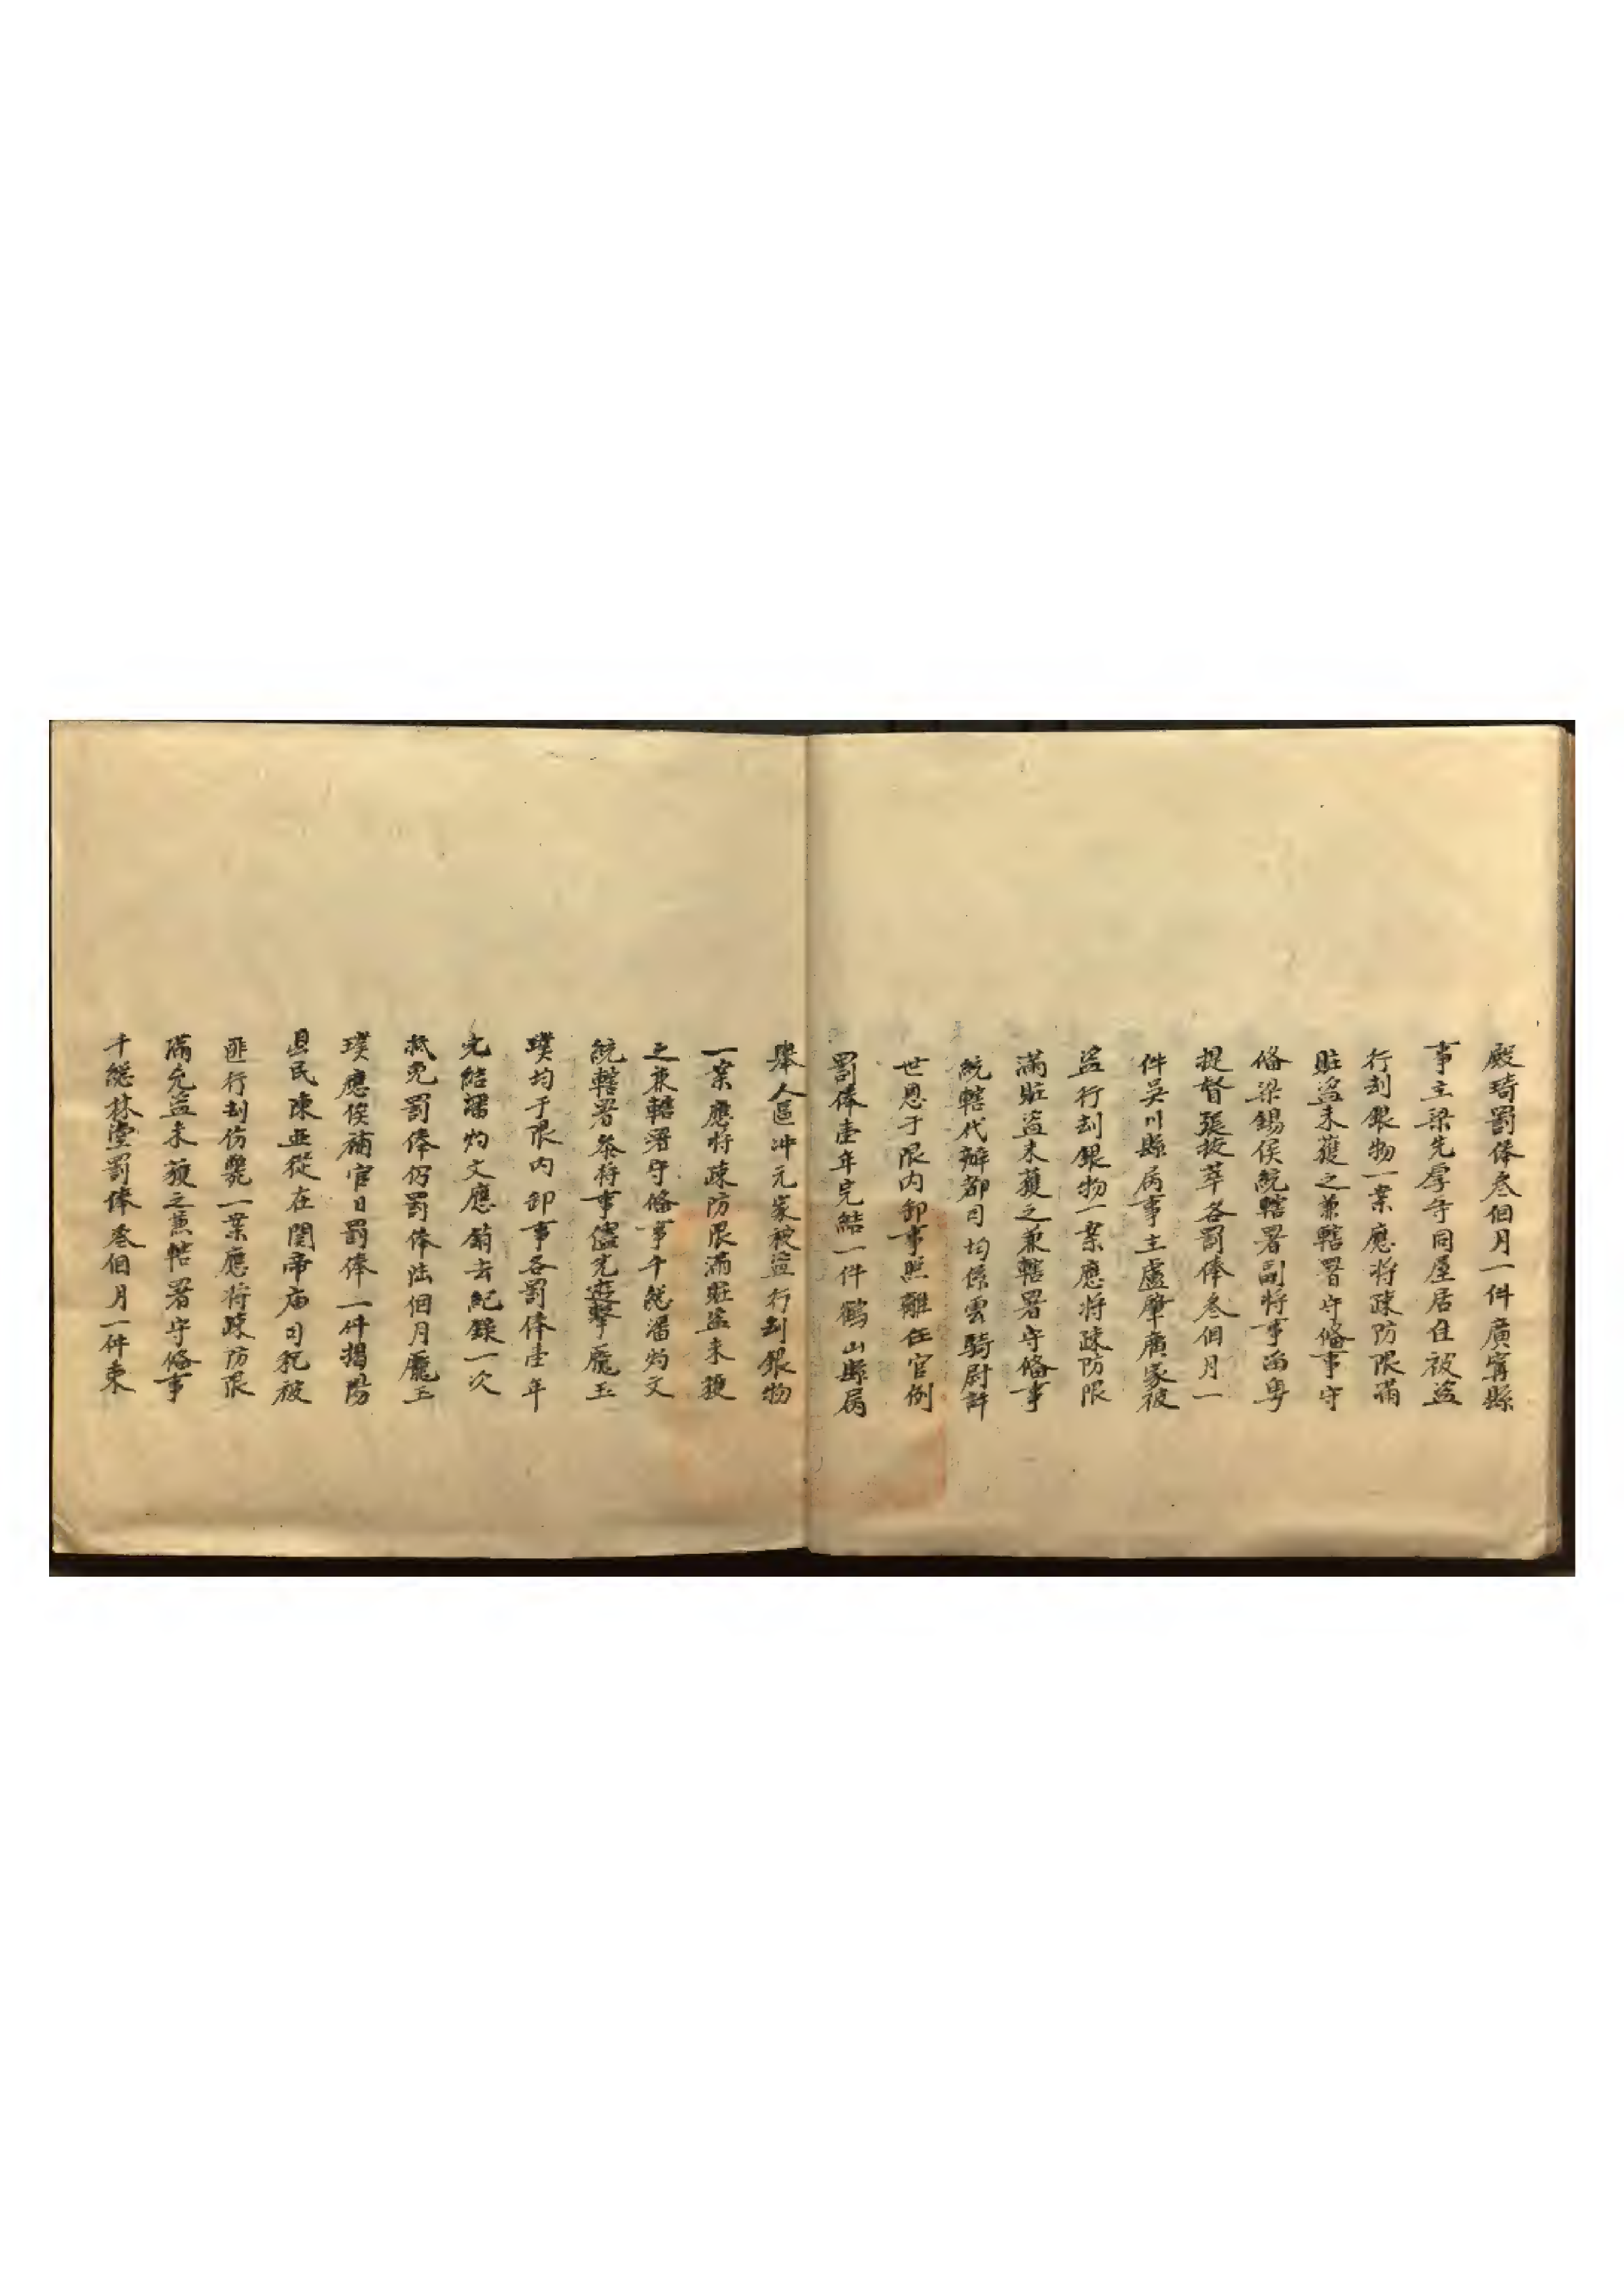 殿琦罰俸叁個月一件廣寕縣
事主梁先厚寺同屋居住被盗
行刦銀物一案應将疎防限滿
賍盗未獲之兼轄署守俻事守
俻梁錫侯統轄署副将事南粤
提督張拔萃各罰俸叁個月一
件吳川縣属事主盧肇廣家被
盗行刦銀物一案應将疎防限
滿賍盗未獲之兼轄署守俻事
統轄代辦都司均係雲騎尉許
世恩于限内卸事照離任官例
罰俸壹年完結一件鶴山縣属
舉人區冲元家被盗行刦銀物
一案應将疎防限滿賍盗未獲
之兼轄署守俻事千総潘灼文
統轄署叅将事儘先遊擊龎玉
璞均于限内卸事各罰俸壹年
完結潘灼文應銷去紀錄一次
抵免罰俸仍罰俸陆個月龎玉
璞應俟補官日罰俸一件揭陽
县民陳亚從在関帝庙司祝被
匪行刦伤斃一案應将疎防限
滿兇盗未獲之兼轄署守俻事
千総林瑩罰俸叁個月一件東